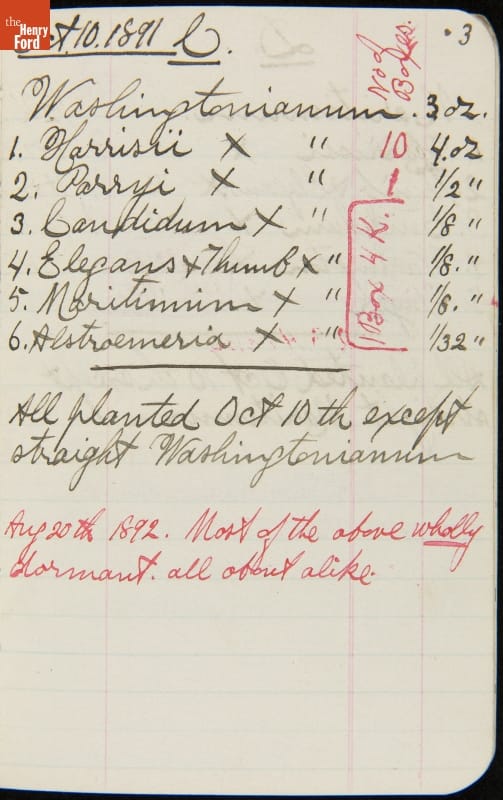 the
Henry
Ford
Oct. 10. 1891 L.
3
No of
Boxes.
Washingtonianum . 3 oz.
1. Harrisii X " 10 4. oz
2. Parryi X " 1 1/2 "
3. Candidum X " 1/8 "
4. Elegans & Thumb X " 1/8. "
5. Maritimum X " 1/8. "
6. Alstroemeria X " 1/32 "
1 Box 4 K.
All planted Oct 10th except
straight Washingtonianum
Aug 20th 1892. Most of the above wholly
dormant. all about alike.